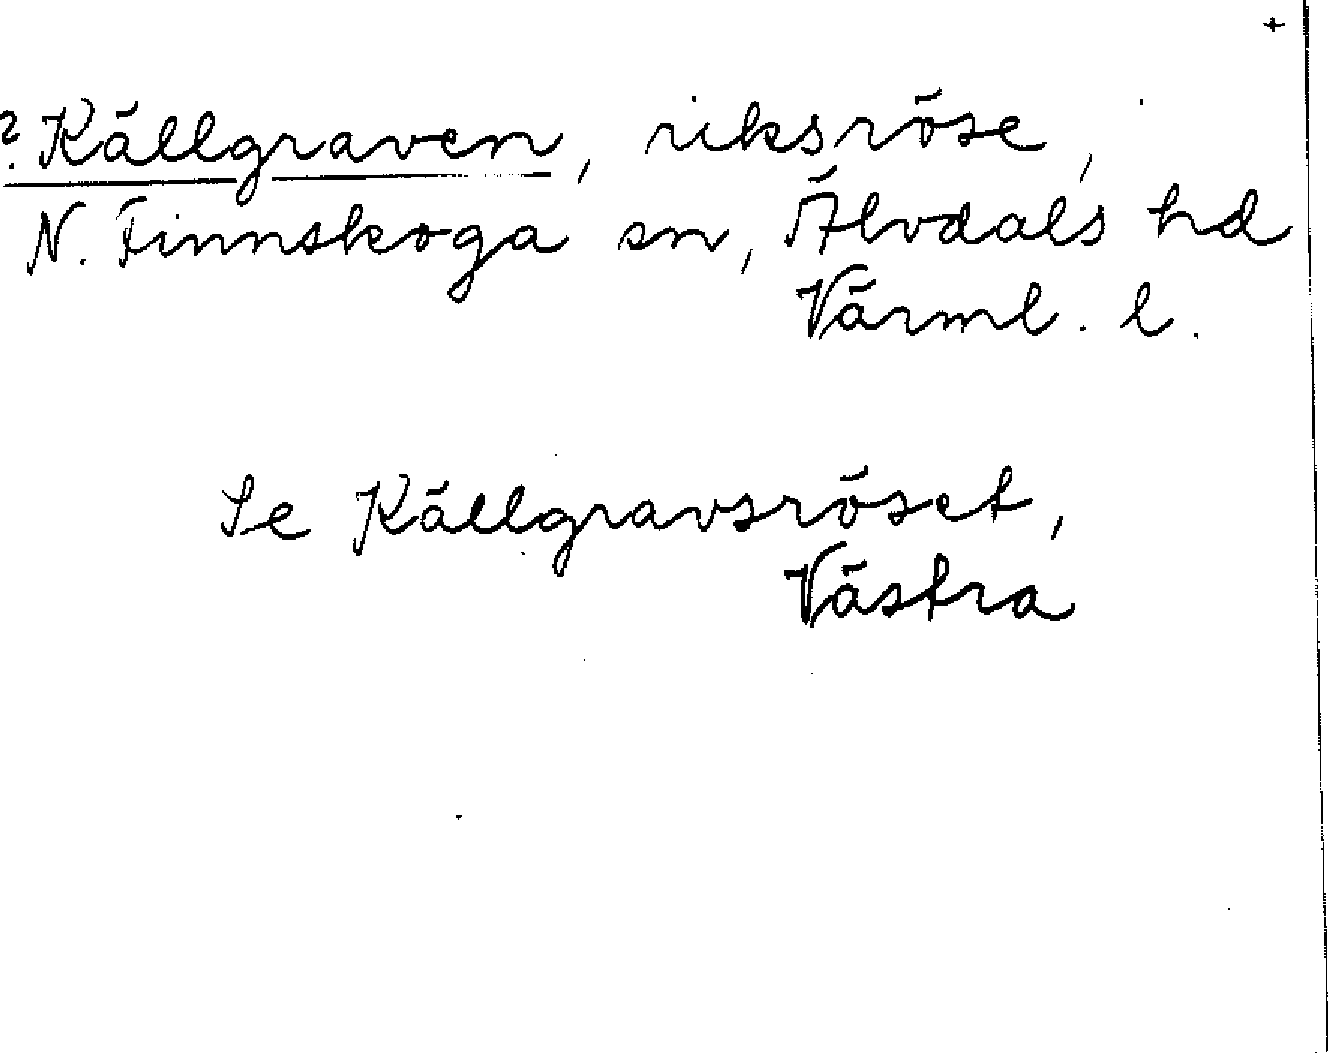 +
? Källgraven, riksröse,
N. Finnskoga sn, Älvdals hd
Värml. l.
Se Källgravsröset,
Västra